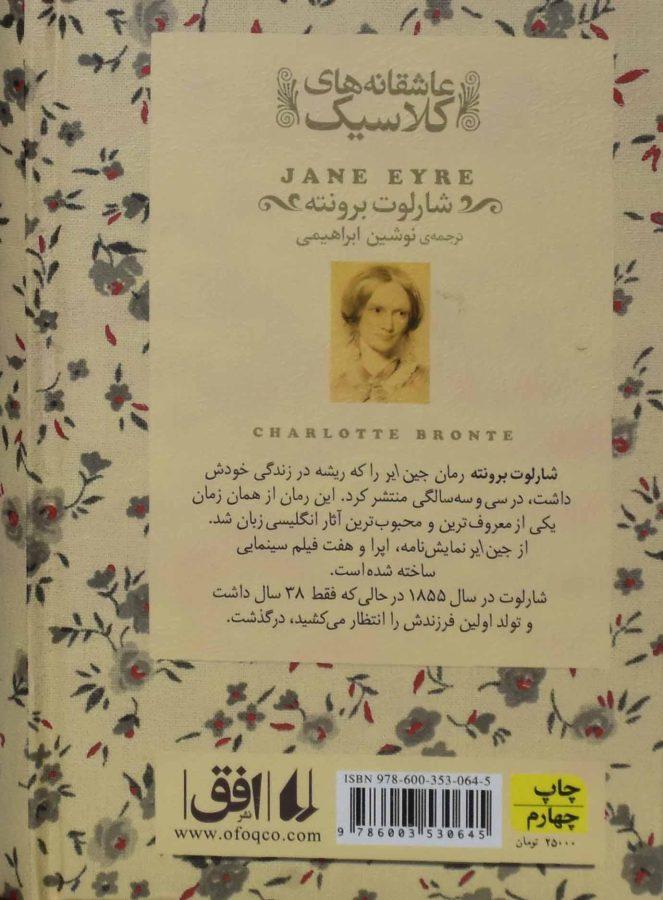 عاشقانه‌های
کلاسیک
JANE EYRE
شارلوت برونته
ترجمه‌ی نوشین ابراهیمی
CHARLOTTE BRONTE
شارلوت برونته رمان جین‌ایر را که ریشه در زندگی خودش
داشت، در سی و سه‌سالگی منتشر کرد. این رمان از همان زمان
یکی از معروف‌ترین و محبوب‌ترین آثار انگلیسی زبان شد.
از جین‌ایر نمایش‌نامه، اپرا و هفت فیلم سینمایی
ساخته شده است.
شارلوت در سال ۱۸۵۵ در حالی که فقط ۳۸ سال داشت
و تولد اولین فرزندش را انتظار می‌کشید، درگذشت.
چاپ
چهارم
۲۵۰۰۰ تومان
ISBN 978-600-353-064-5
9 786003 530645
نشر افق
www.ofoqco.com